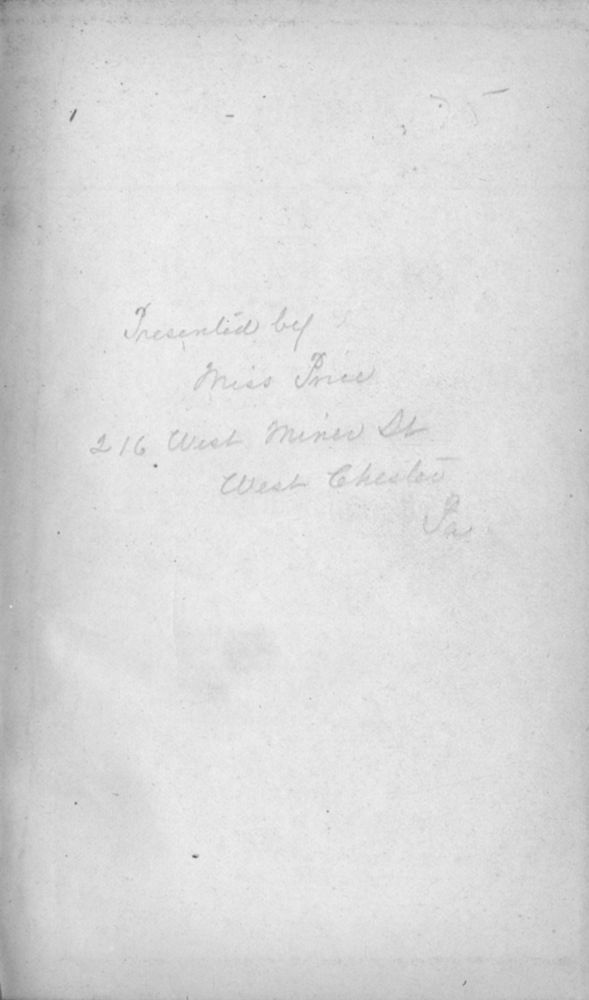 Presented by
Miss Price
216 West Miner St
West Chester
Pa